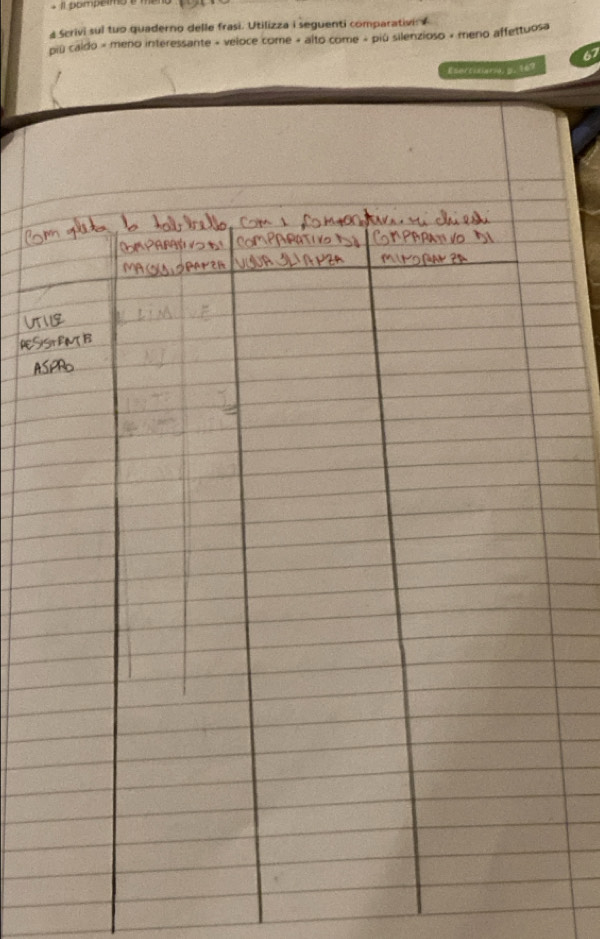 il pompelmo è meno
Scrivi sul tuo quaderno delle frasi. Utilizza i seguenti comparativi:
più caldo • meno interessante • veloce come • alto come • più silenzioso • meno affettuosa
67
Eserciziario, p. 167
Completa la tabella con i comparativi richiesti
COMPARATIVO DI COMPARATIVO DI COMPARATIVO DI
MAGGIORANZA UGUAGLIANZA MINORANZA
UTILE
RESISTENTE
ASPRO